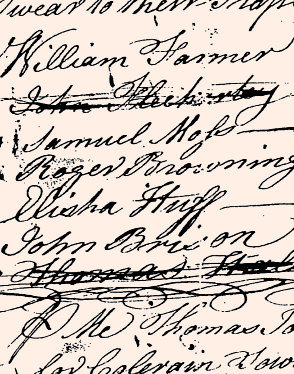 swear to their
William Farmer
John
Samuel Moss
Roger Browning
Elisha Huff
John Brison
Thomas
Me Thomas
for Colerain Town